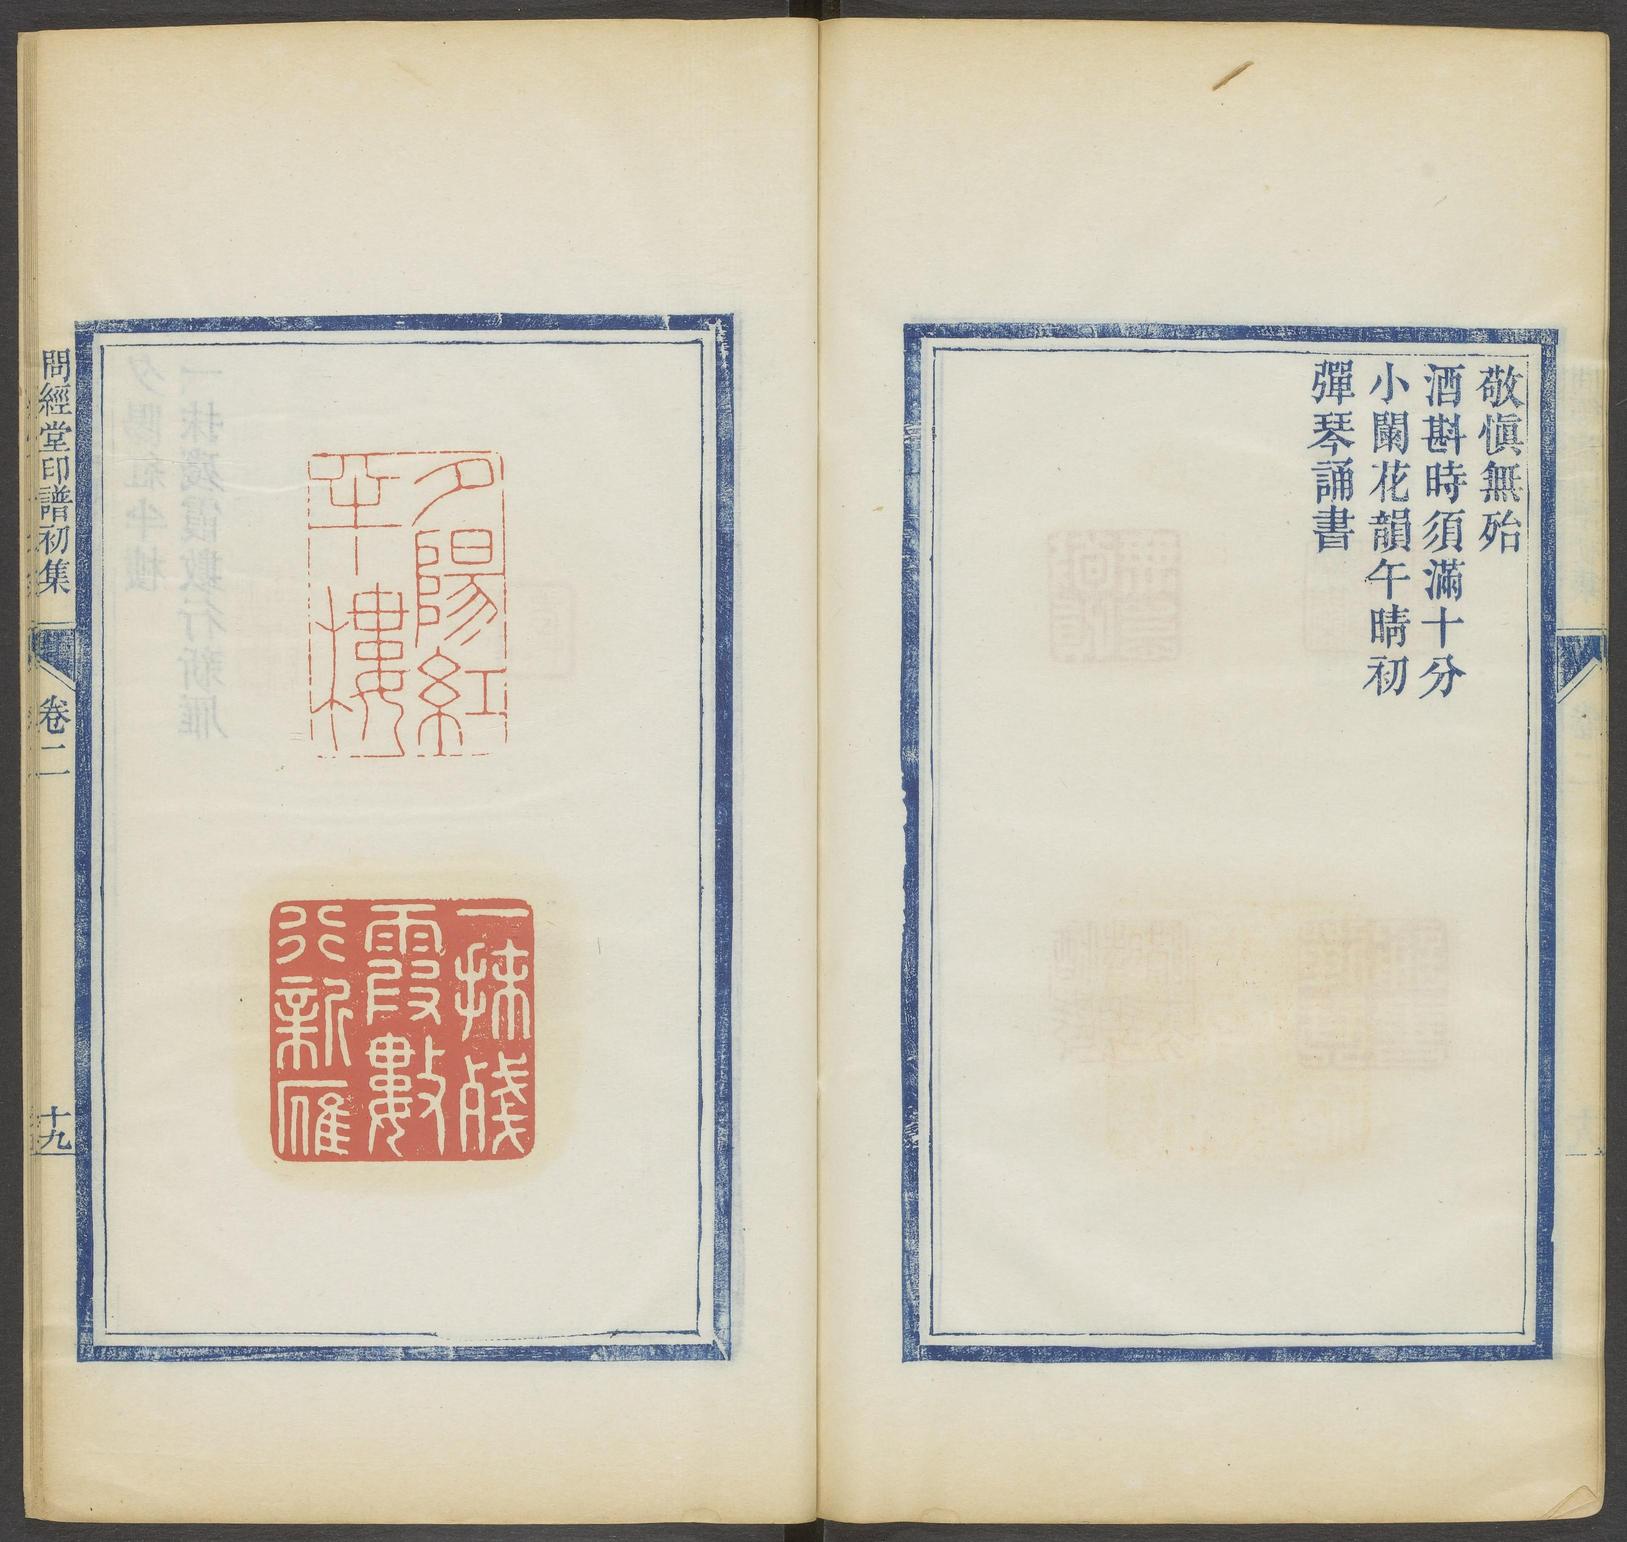 敬慎無殆
酒斟時須滿十分
小闌花韻午晴初
彈琴誦書
夕陽紅
半樓
一抹殘
霞數
行新雁
問經堂印譜初集
卷二
十九